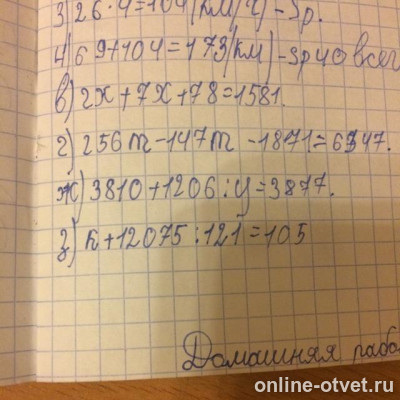 3) 26·4=104(км/ч)-Sр.
4) 69+104=173(км)-Sр40 всего
в) 2х+7х+78=1581.
г) 256m-147m-1871=6347.
ж) 3810+1206:y=3877.
з) к+12075:121=105
Домашняя рабо
online-otvet.ru